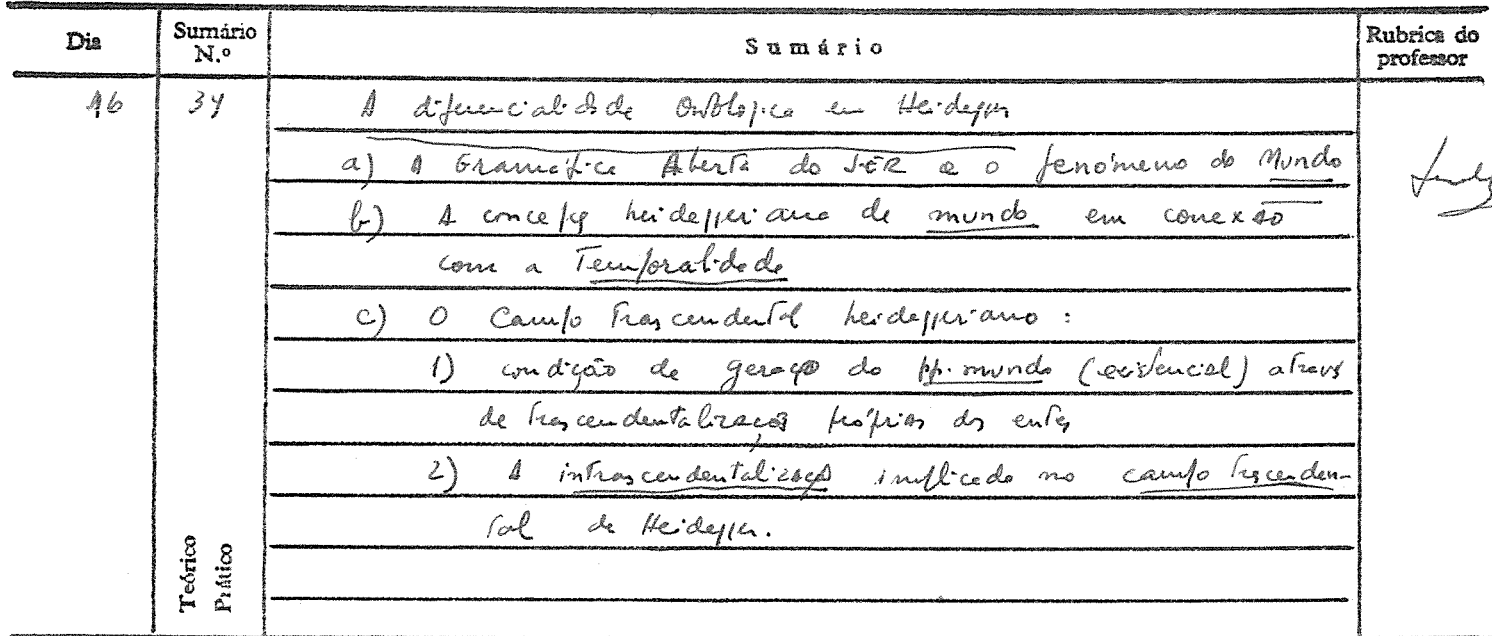 Dia Sumário N.º Sumário Rubrica do professor
16 34 A diferencialidade Ontológica em Heidegger
a) A Gramática Aberta do SER e o fenómeno do Mundo
b) A concepção heideggeriana de mundo em conexão
com a Temporalidade
c) O Campo Trascendental heideggeriano :
1) condição de geração do pp. mundo (existencial) através
de trascendentalizações próprias dos entes
2) A intrascendentalização implicada no campo trscenden-
tal de Heidegger.
Teórico
Prático